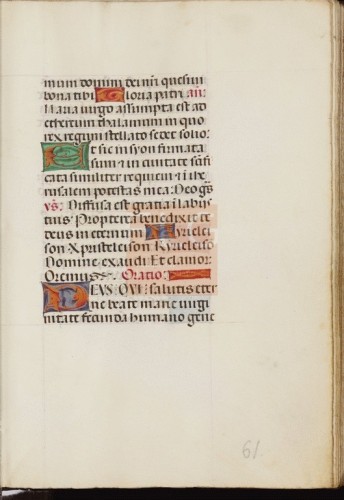 mum domini dei nri quesiui
bona tibi Gloria patri añ.
Maria uirgo assumpta est ad
ethereum thalamum in quo
rex regum stellato sedet solio.
Et sic in syon firmata
sum & in ciuitate sañti
ficata similiter requieui & i hie
rusalem potestas mea. Deo grs
vs. Diffusa est gratia i labijs
tuis. Propterea benedixit te
deus in eternum Kyrielei
son Xpristeleison Kyrieleiso
Domine exaudi Et clamor.
Oremus. Oratio.
DEVS QVI salutis eter
ne beate marie uirgi
nitate fecunda humano gene
61